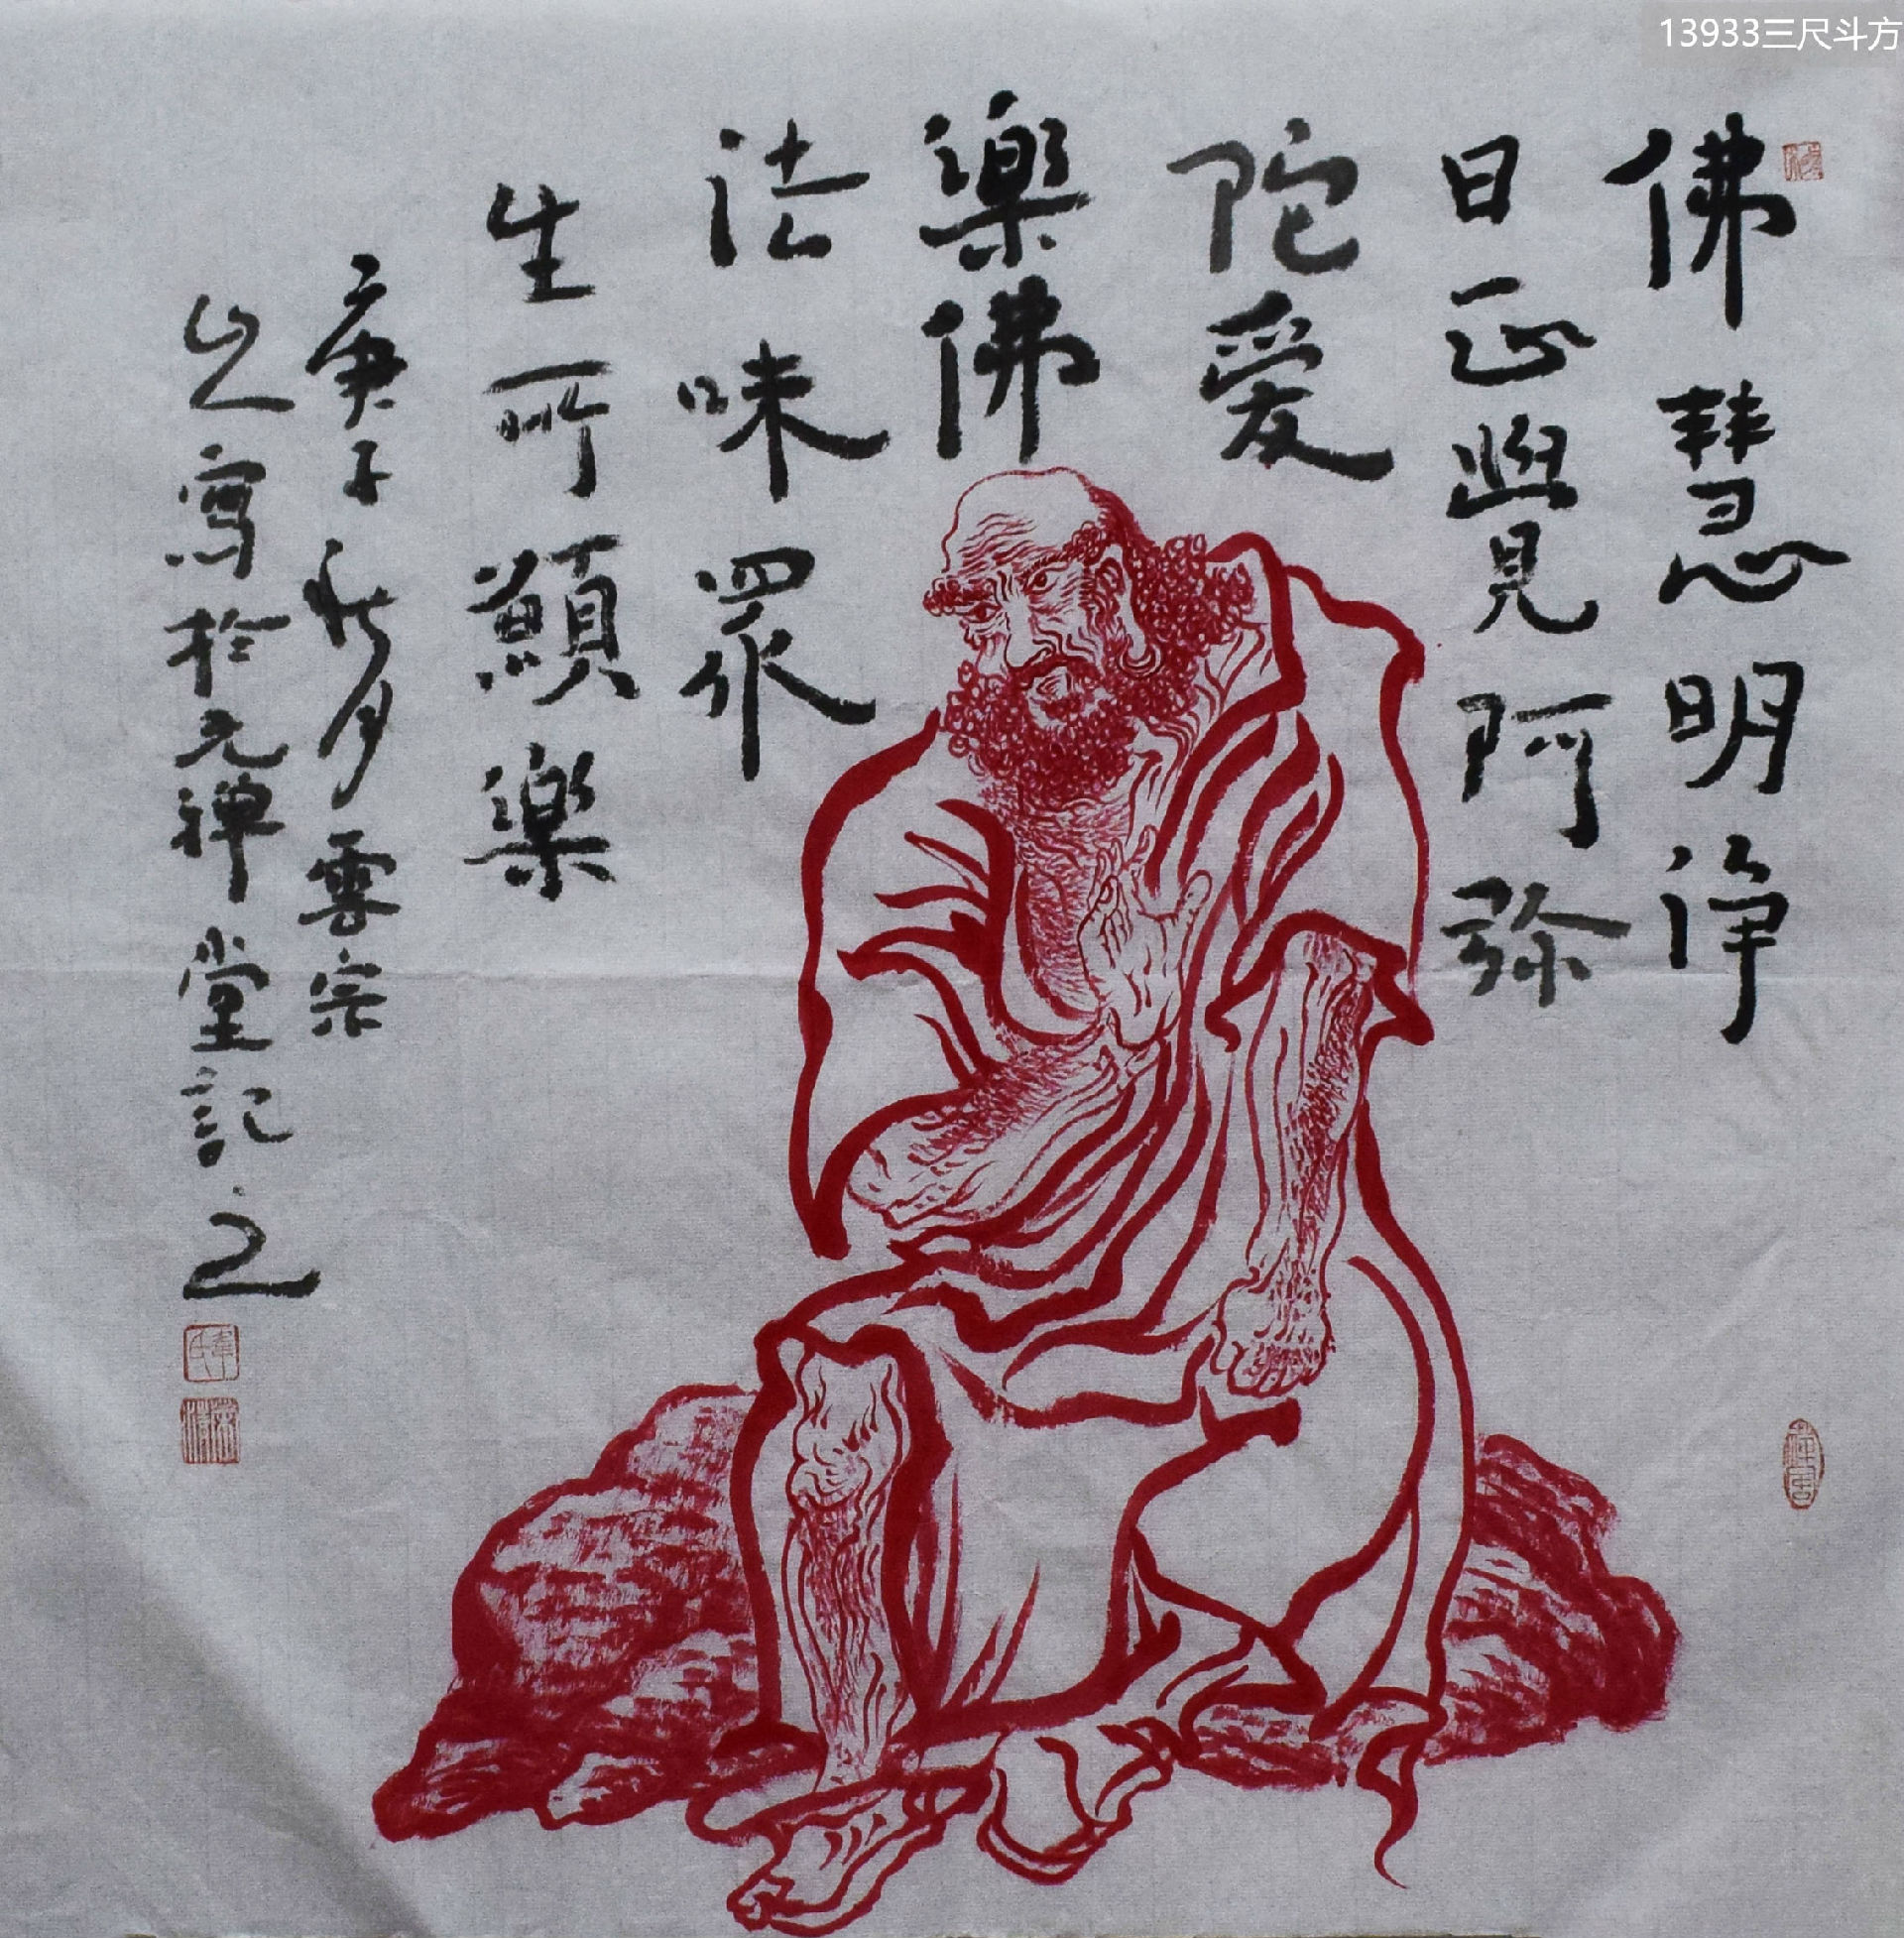 13933三尺斗方
佛慧明净
日正與覺阿弥
陀愛
樂佛
法味眾
生所願樂
庚子秋月雲宗
山人寫於元禪堂記之